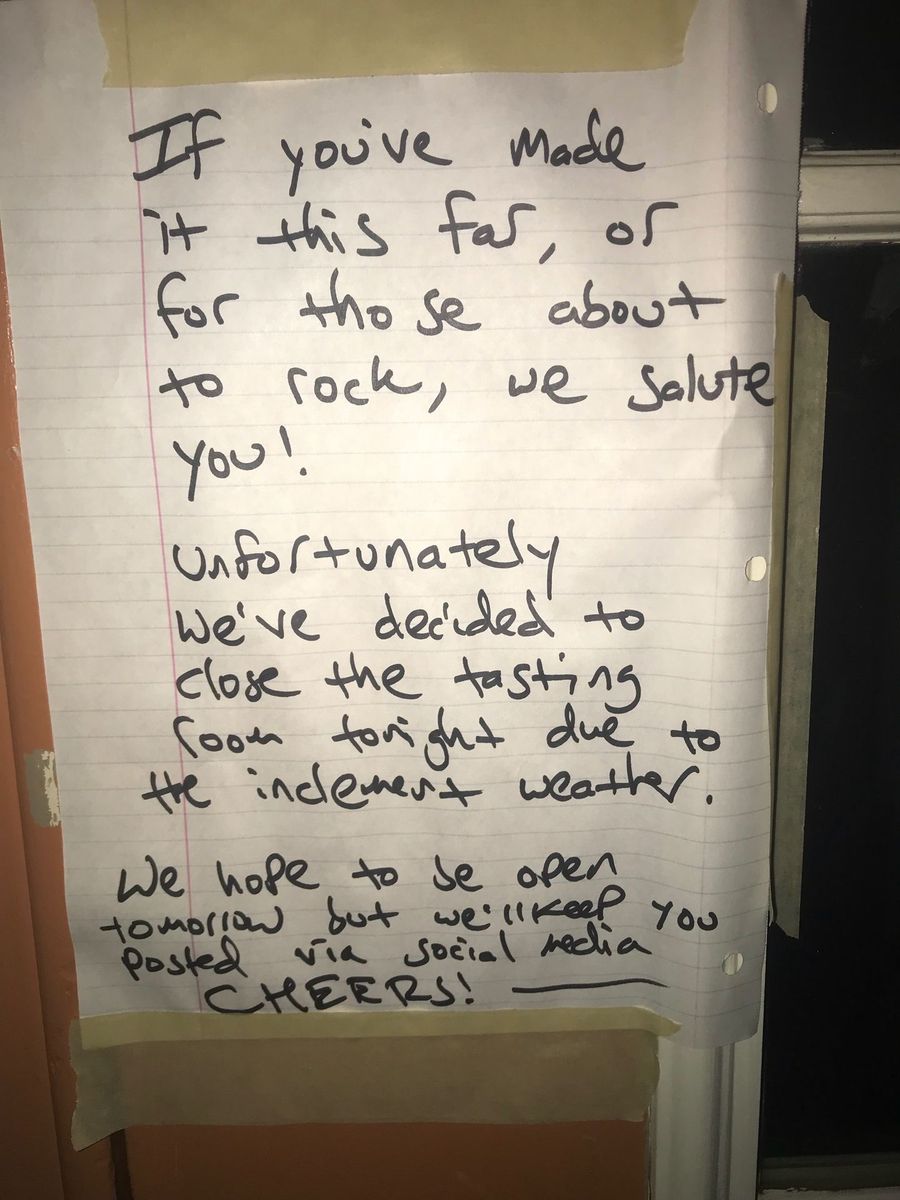 If you've made
it this far, or
for those about
to rock, we salute
you!
Unfortunately
we've decided to
close the tasting
room tonight due to
the inclement weather.
We hope to be open
tomorrow but we'll keep you
posted via social media
CHEERS!